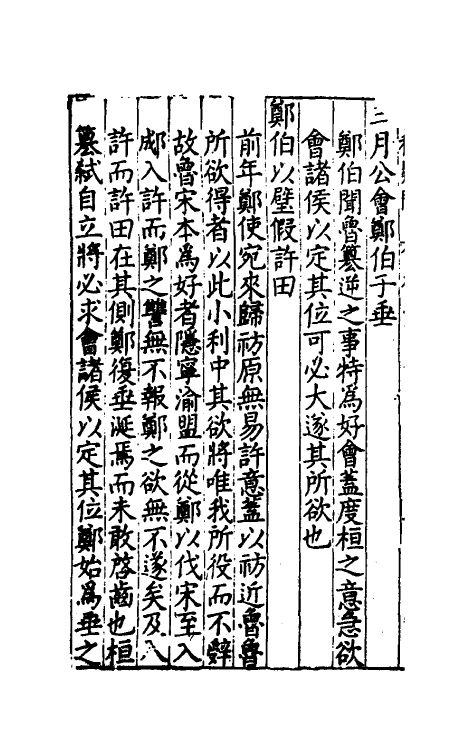 三月公會鄭伯于垂
鄭伯聞魯簒逆之事特為好會蓋度桓之意急欲
會諸侯以定其位可必大遂其所欲也
鄭伯以璧假許田
前年鄭使宛來歸祊原無易許意蓋以祊近魯魯
所欲得者以此小利中其欲將唯我所役而不辭
故魯宋本為好者隱寧渝盟而從鄭以伐宋至入
郕入許而鄭之讐無不報鄭之欲無不遂矣及入
許而許田在其側鄭復垂涎焉而未敢啓齒也桓
簒弒自立將必求會諸侯以定其位鄭始為垂之